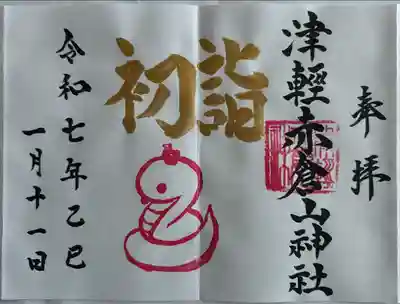 奉拝
津軽赤倉山神社
初詣
令和七年乙巳
一月十一日